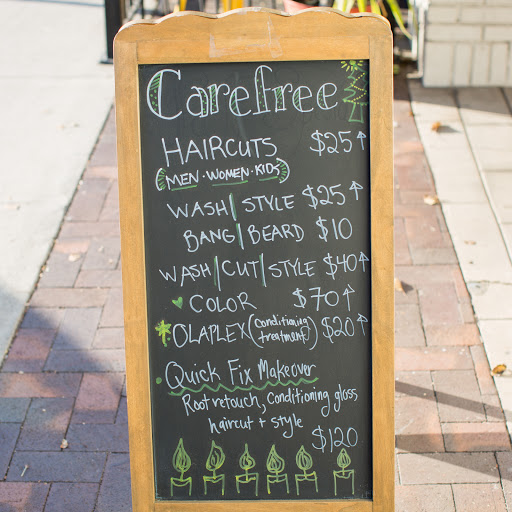 Carefree
HAIRCUTS $25↑
(MEN • WOMEN • KIDS)
WASH | STYLE $25↑
BANG | BEARD $10
WASH | CUT | STYLE $40↑
COLOR $70↑
OLAPLEX (conditioning treatment) $20↑
Quick Fix Makeover
Root retouch, conditioning gloss
haircut + style
$120